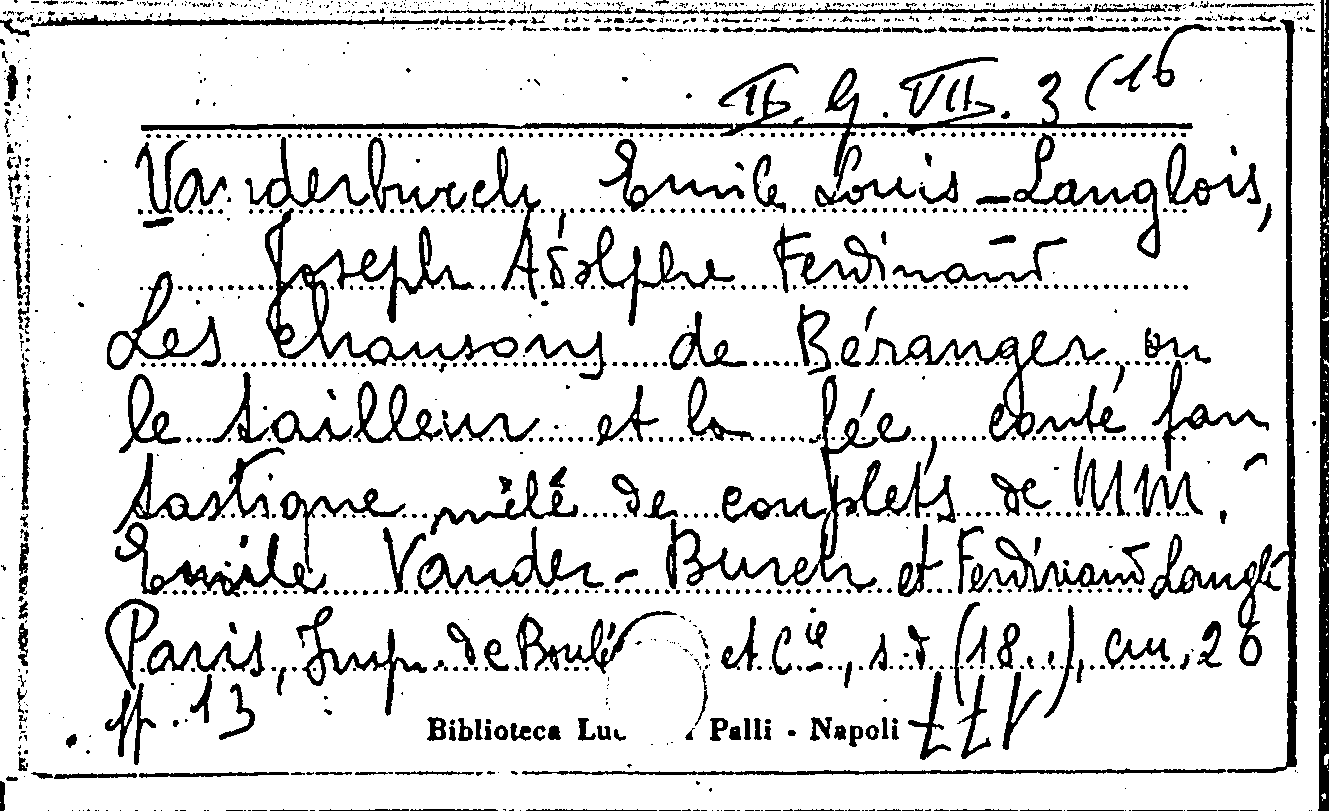 II. G. VII. 3 (16
Vanderburch, Emile Louis - Langlois,
Joseph Adolphe Ferdinand
Les chansons de Béranger, ou
le tailleur et la fée, conté fan
tastique mêlé de couplets de MM.
Emile Vander-Burch et Ferdinand Langlé
Paris, Imp. de Boulé et Cie, s.d (18..), cm. 26
pp. 13
Biblioteca Palli - Napoli